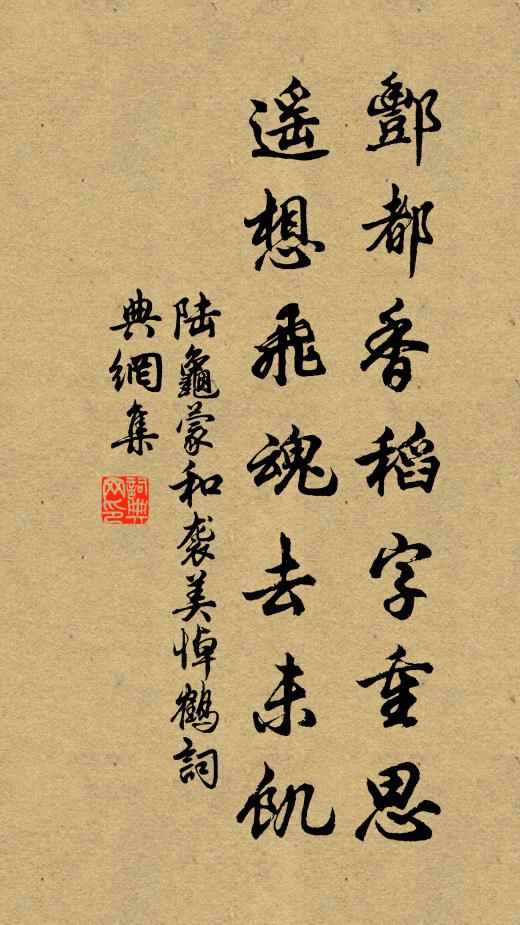 酆都香稻字重思
遥想飛魂去未飢
陆龜蒙和袭美悼鶴詞
典網集
詞典網印